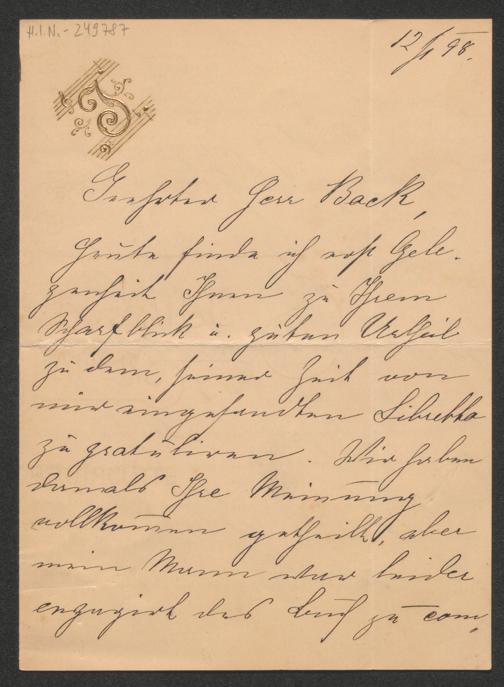 H.I.N.-249787
12/1 98.
Geehrter Herr Back,
Heute finde ich erst Gele-
genheit Ihnen zu Ihrem
Scharfblick u. guten Urtheil
zu dem, seiner Zeit von
mir eingesandten Libretto
zu gratuliren. Wir haben
damals Ihre Meinung
vollkommen getheilt, aber
mein Mann war leider
engagirt das Buch zu com-